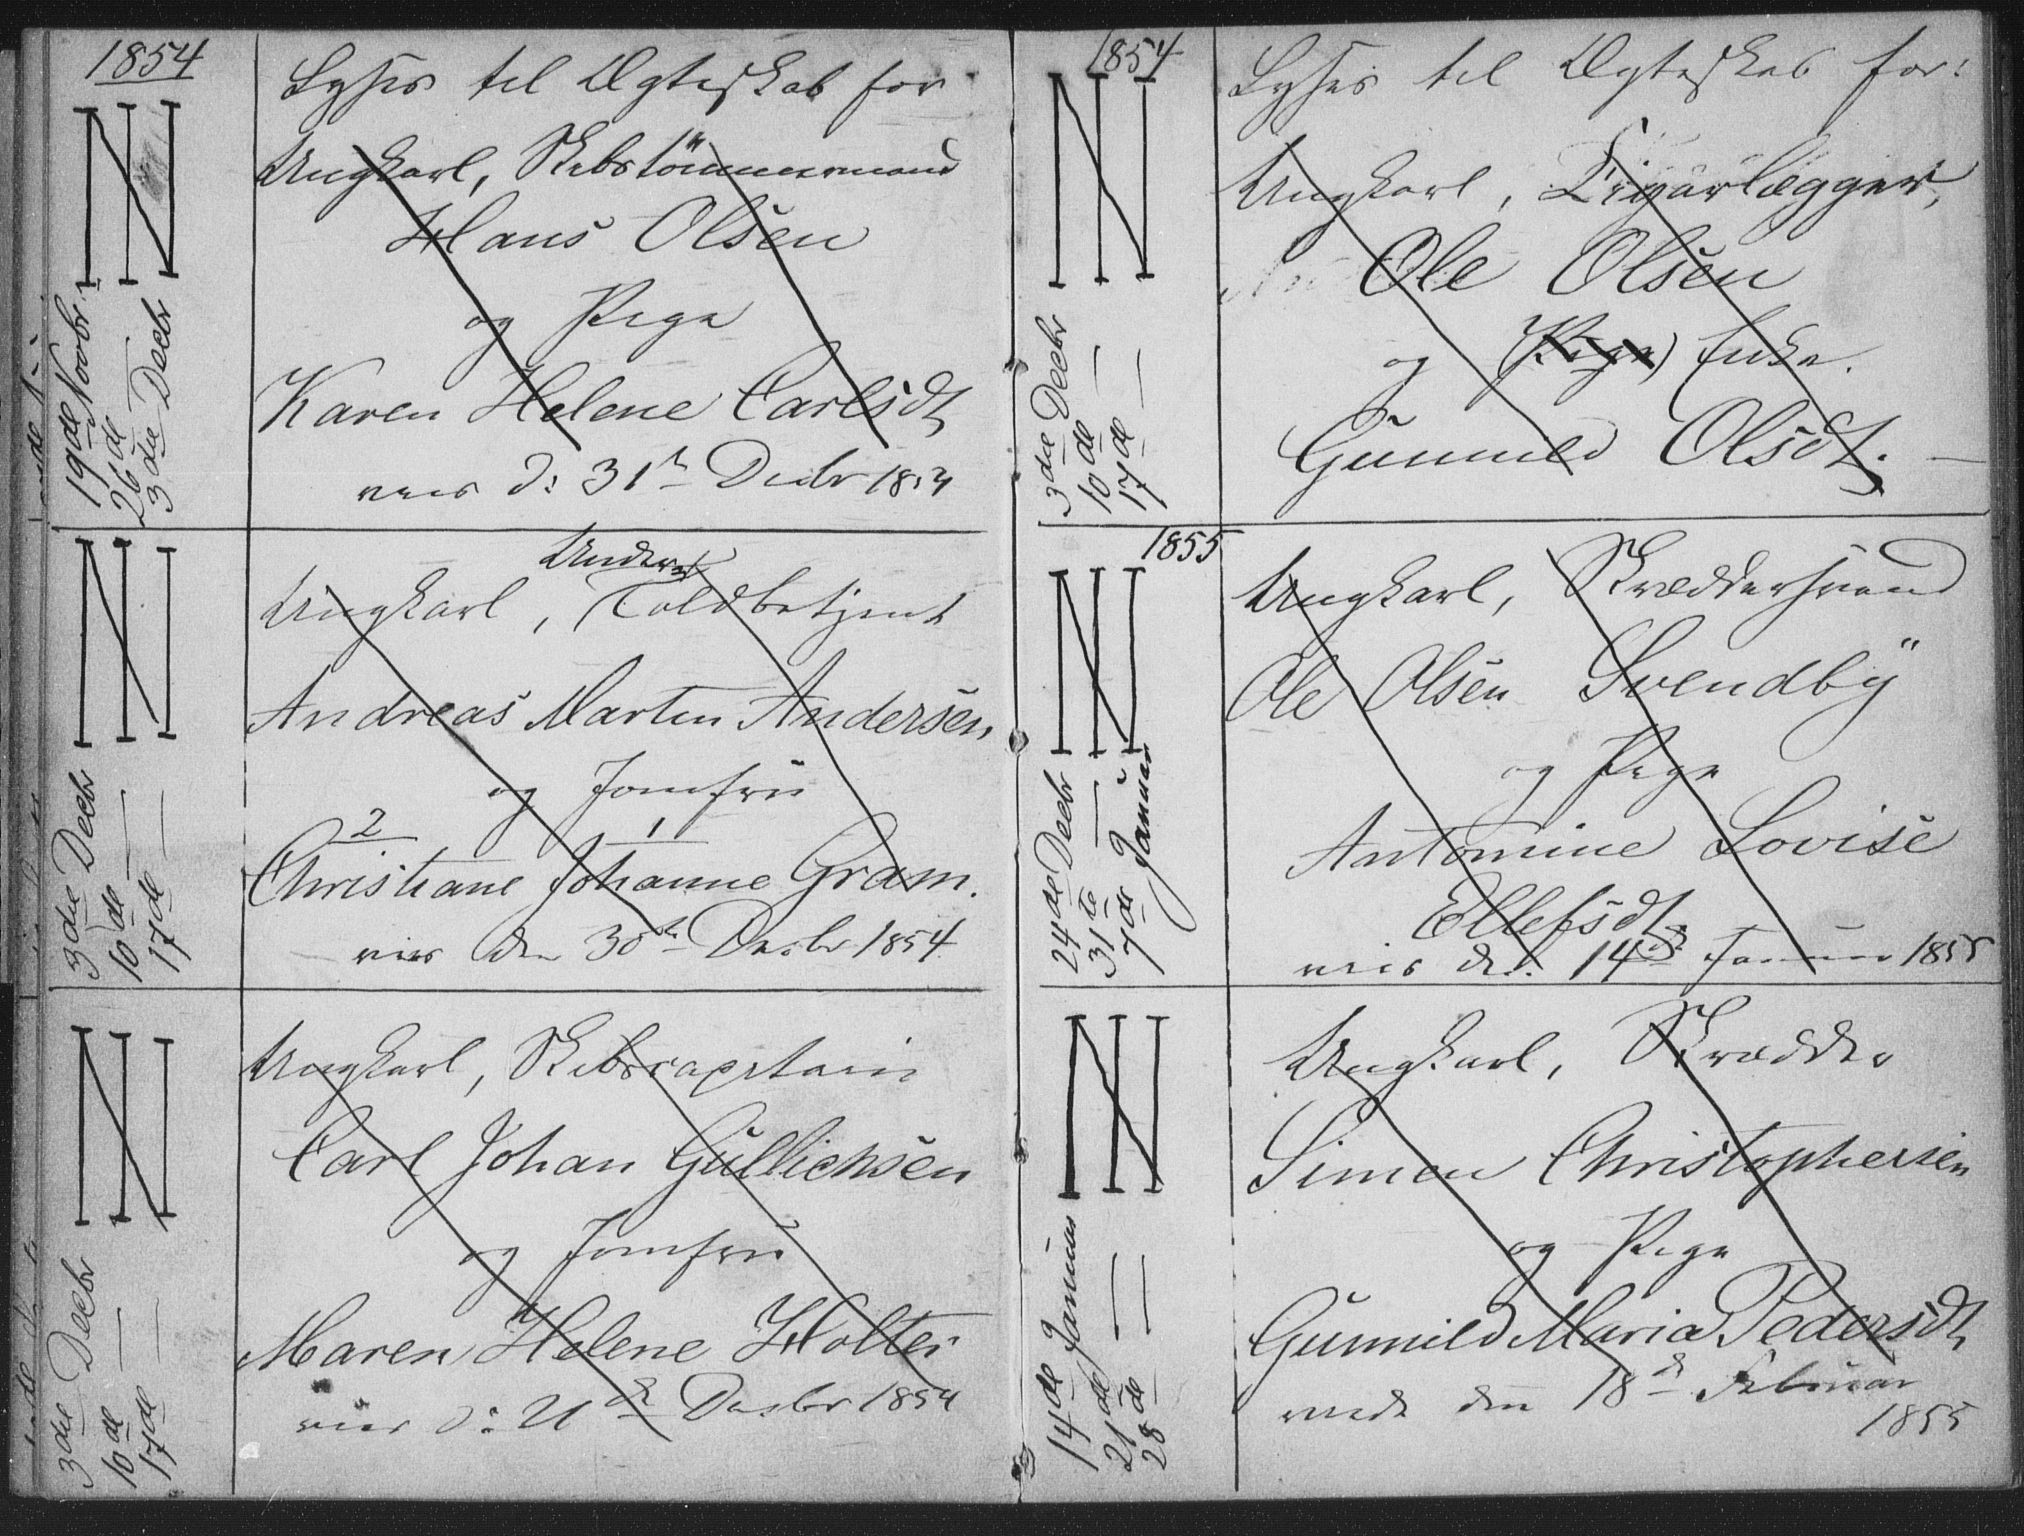 1854
Lyses til Ægteskab for
Ungkarl, Skibstömmermand
Hans Olsen
og Pige
Karen Helene Carlsdt
viet d: 31te Decbr 1854
19de Novbr
26de —
3die Decbr
Under
Ungkarl, Toldbetjent
Andreas Martin Andersen,
og Jomfru
2 1
Christiane Johanne Gram.
viet den 30te Decbr 1854
3die Decbr
10de —
17de —
Ungkarl, Skibscapitain
Carl Johan Gullichsen
og Jomfru
Maren Helene Holter
viet d: 21de Decbr 1854
3die Decbr
10de —
17de —
1854
Lyses til Ægteskab for:
Ungkarl, Ligarlægger,
Ole Olsen
og (Pige) Enke.
Gunnild Olsdt. —
3die Decbr
10de —
17de —
1855
Ungkarl, Skræddersvend
Ole Olsen Svendby
og Pige
Antomine Lovise
Ellefsdt
viet d. 14de Januar 1855
24de Decbr
31te —
7de Januar
Ungkarl, Skrædder
Simen Christophersen
og Pige
Gunnild Maria Pedersdt
viede den 18de Februar
1855
14de Januar
21de —
28de —